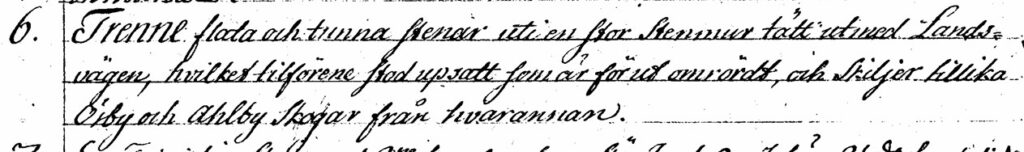 6. Trenne flata och tunna stenar uti en stor stenmur tätt utmed Lands-
vägen, hvilket tilförene stod upsatt som är förut omrördt, och skiljer tillika
Öiby och Ahlby skogar från hvarannan.